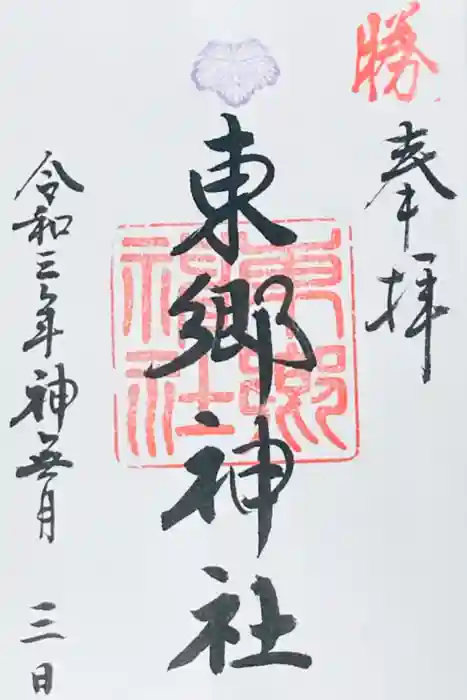 勝
奉拝
東郷神社
東郷神社
令和三年神無月三日